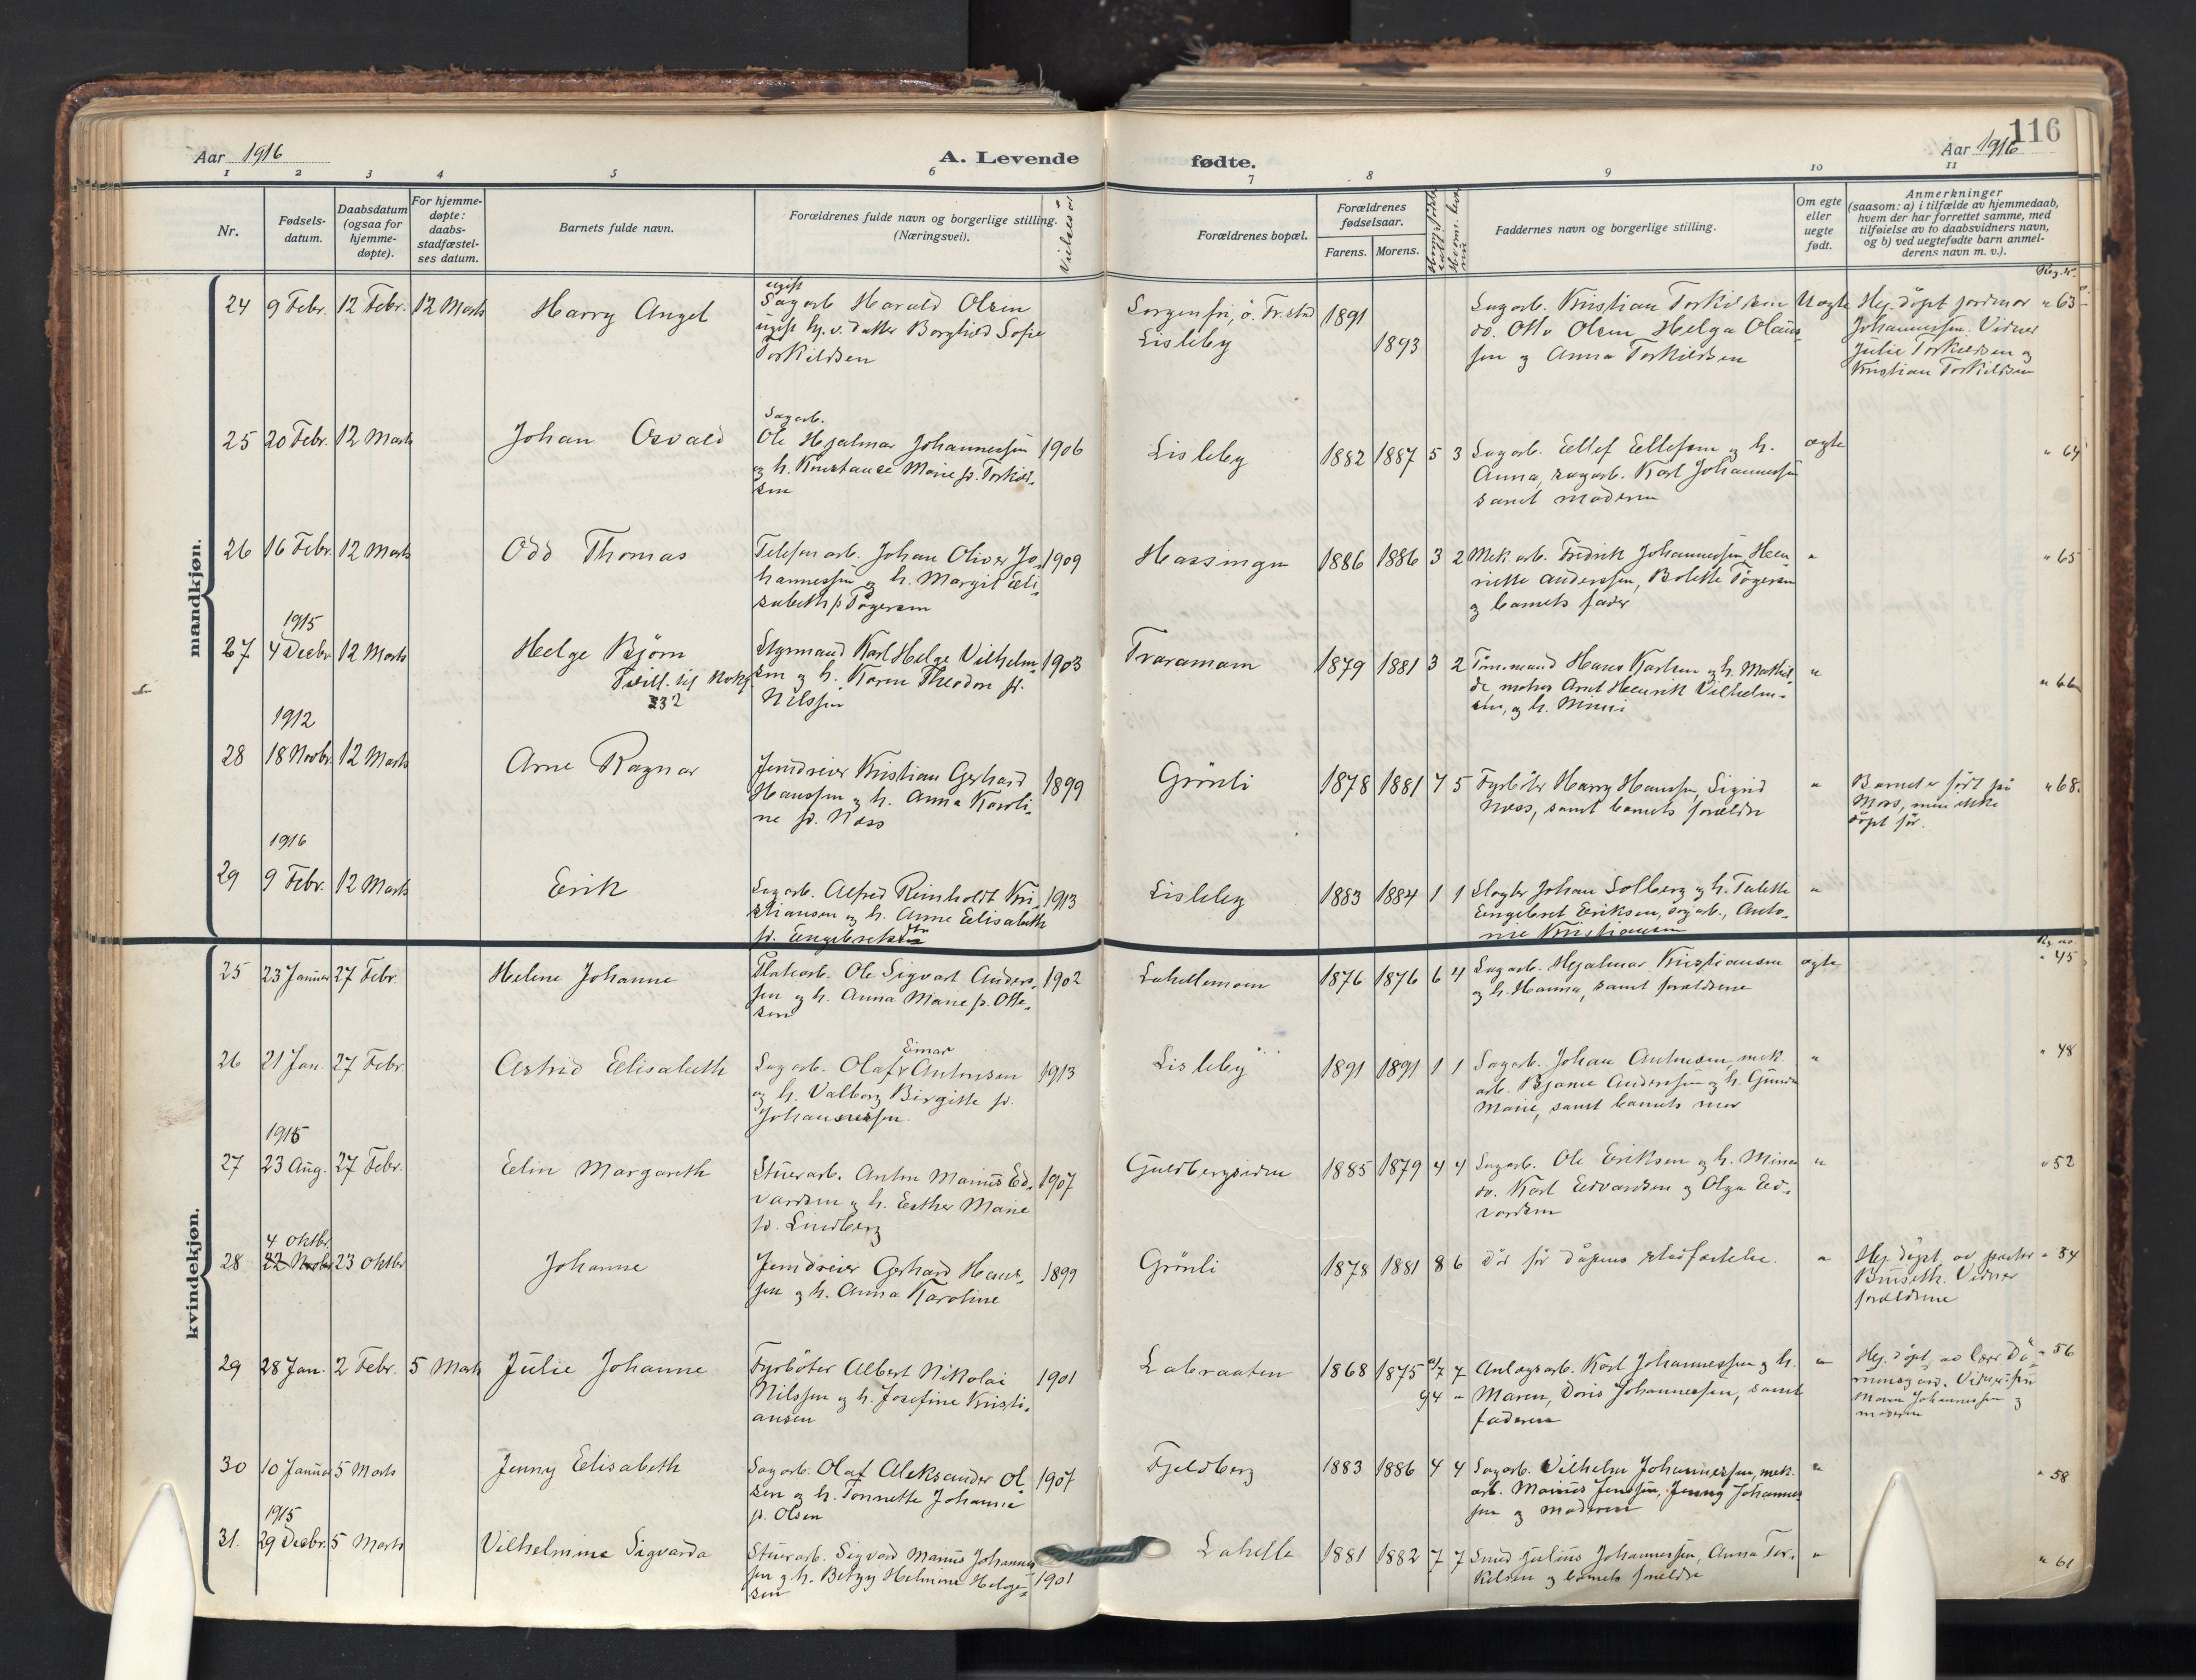 116
Aar 1916
A. Levende
fødte.
Aar 1916
1 2 3 4 5 6 7 8 9 10 11
Nr.
Fødsels-
datum.
Daabsdatum
(ogsaa for
hjemme-
døpte).
For hjemme-
døpte:
daabs-
stadfæstel-
ses datum.
Barnets fulde navn.
Forældrenes fulde navn og borgerlige stilling.
(Næringsvei).
Forældrenes bopæl.
Forældrenes
fødselsaar.
Farens. Morens.
Faddernes navn og borgerlige stilling.
Om egte
eller
uegte
født.
Anmerkninger
(saasom: a) i tilfælde av hjemmedaab,
hvem der har forrettet samme, med
tilføielse av to daabsvidners navn,
og b) ved uegtefødte barn anmel-
derens navn m. v.).
mandkjøn.
24 9 Febr. 12 Febr. 12 Marts Harry Angel
ugift
Sagarb. Harald Olsen
ugift datter Borghild Sofie
Torkildsen
Sorgenfri, ö. Fr.stad
Lisleby
1891
1893
Sagarb. Kristian Torkildsen
do. Otto Olsen, Helga Olaus-
sen og Anna Torkildsen
Uægte
Hj. döpt jordmor
Johannessen. Vidner
Julie Torkildsen og
Kristian Torkildsen
" 63
25 20 Febr. 12 Marts Johan Osvald
Sagarb.
Ole Hjalmar Johannessen
og h. Konstance Marie f. Torkild-
sen
1906
Lisleby
1882 1887 5 3
Sagarb. Ellef Ellefsen og h.
Anna, sagarb. Karl Johannessen
samt moderen
ægte
" 64
26 16 Febr. 12 Marts Odd Thomas
Telefonarb. Johan Oliver Jo-
hannessen og h. Margit Eli-
sabeth f. Tögersen
1909
Hassingen
1886 1886 3 2
Mek. arb. Fredrik Johannessen, Hen-
riette Anderssen, Bolette Tögersen
og barnets fader
"
" 65
1915
27 4 Decbr. 12 Marts Helge Bjørn
232
Styrmand Karl Helge Vilhelm-
sen og h. Karen Theodora f.
Nilssen
1903
Traramoen
1879 1881 3 2
Tömmermand Hans Karlsen og h. Mathil-
de, Arnt Henrik Vilhelm-
sen, og h. Minni
"
" 66
1912
28 18 Novbr. 12 Marts Arne Ragnar
Jerndreier Kristian Gerhard
Hanssen og h. Anna Karoli-
ne f. Næss
1899
Grönli
1878 1881 7 5
Fyrböter Harry Hanssen, Sigrid
Næss, samt barnets forældre
"
Barnet er født på
Moss, men ikke
döpt før.
" 68.
1916
29 9 Febr. 12 Marts Erik
Sagarb. Alfred Reinholdt Kri-
stiansen og h. Anne Elisabeth
f. Engebretsen
1913
Lisleby
1883 1884 1 1
Slagter Johan Solberg og h. Talette
Engebret Eriksen, sagarb., Anto-
nie Kristiansen
"
kvindekjøn.
25 23 Januar 27 Febr. Helene Johanne
Platearb. Ole Sigvart Anders-
sen og h. Anna Marie f. Otte-
sen
1902
Lahellemoen
1876 1876 6 4
Sagarb. Hjalmar Kristiansen
og h. Hanna, samt forældrene
ægte
" 45
26 21 Jan. 27 Febr. Astrid Elisabeth
Einar
Sagarb. Olaf Antonsen
og h. Valborg Birgitte f.
Johannessen
1913
Lisleby
1891 1891 1 1
Sagarb. Johan Antonsen, mek.
arb. Bjarne Anderssen og h. Gunda
Marie, samt barnets mor
"
" 48
1915
27 23 Aug. 27 Febr. Elin Margareth
Stuerarb. Anton Marius Ed-
vardsen og h. Esther Marie
f. Lindberg
1907
Guldbergsiden
1885 1879 4 4
Sagarb. Ole Eriksen og h. Mina
do. Karl Edvardsen og Olga Ed-
vardsen
"
" 52
4 Oktbr.
28 22 Novbr. 23 Oktbr. Johanne
Jerndreier Gerhard Hans-
sen og h. Anna Karoline
1899
Grönli
1878 1881 8 6
Död før dåpens stadfæstelse.
"
Hj. döpt av pastor
Bruseth. Vidner
forældrene
" 34
29 28 Jan. 2 Febr. 5 Marts Julie Johanne
Fyrböter Albert Nikolai
Nilssen og h. Josefine Kristi-
ansen
1901
Labraaten
1868 1875 7
Anlægsarb. Karl Johannessen og h.
Maren, Doris Johannessen, samt
faderen
"
Hj. döpt av
Maren Johannessen og
moderen
" 56
30 10 Januar 5 Marts Jenny Elisabeth
Sagarb. Olaf Aleksander Ol-
sen og h. Tonnette Johanne
f. Olsen
1907
Fjeldberg
1883 1886 4 4
Sagarb. Vilhelm Johannessen, mek.
arb. Marius Jenssen, Jenny Johannes-
sen og moderen
"
" 58
1915
31. 29 Decbr. 5 Marts Vilhelmine Sigvarda
Stuerarb. Sigvard Marius Johannes-
sen og h. Betzy Helmine Helge-
sen
1901
Lahelle
1881 1882 7 7
Smed Julius Johannessen, Anna Tor-
kelsen og barnets forældre
"
" 61